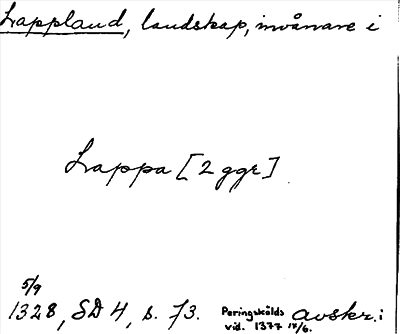 Lappland, landskap, invånare i
Lappa [2 ggr]
5/9
1328, SD 4, s. 73. Peringskiölds avskr. i
vid. 1377 12/6.